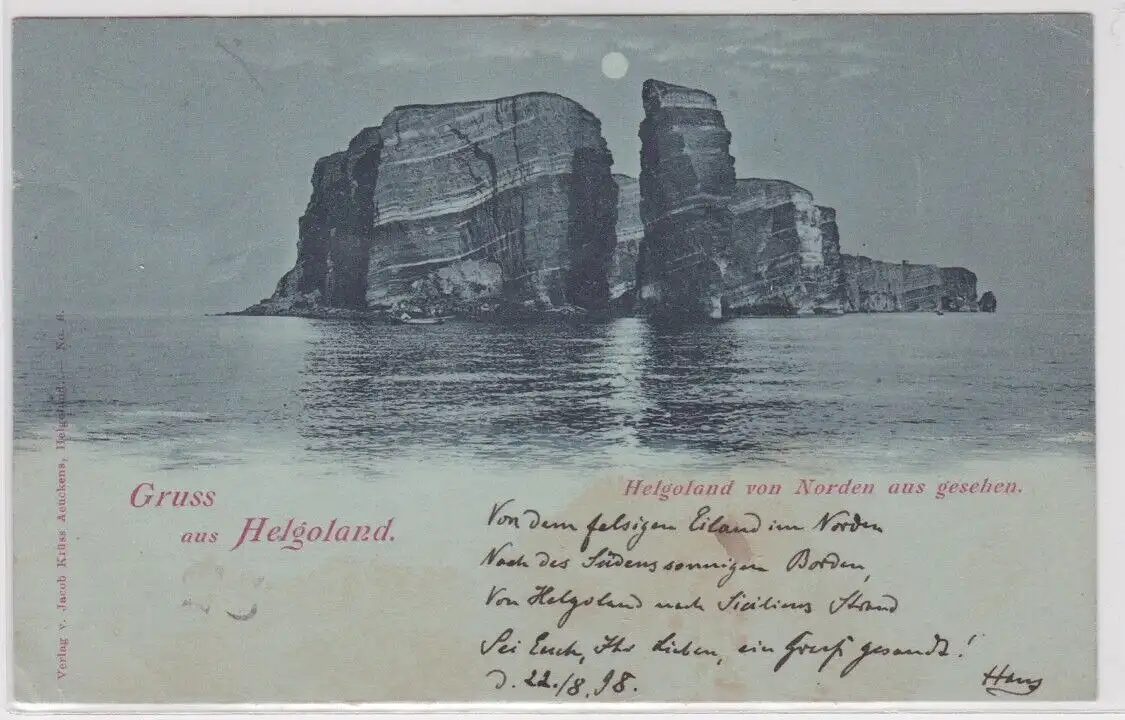 Gruss
aus Helgoland.
Helgoland von Norden aus gesehen.
Von dem felsigen Eiland im Norden
Nach des Südens sonnigen Borden,
Von Helgoland nach Siciliens Strand
Sei Euch, Ihr Lieben, ein Gruß gesandt!
d. 22./8.98.
Hans
Verlag v. Jacob Krüss Aeuckens, Helgoland. — No. 6.